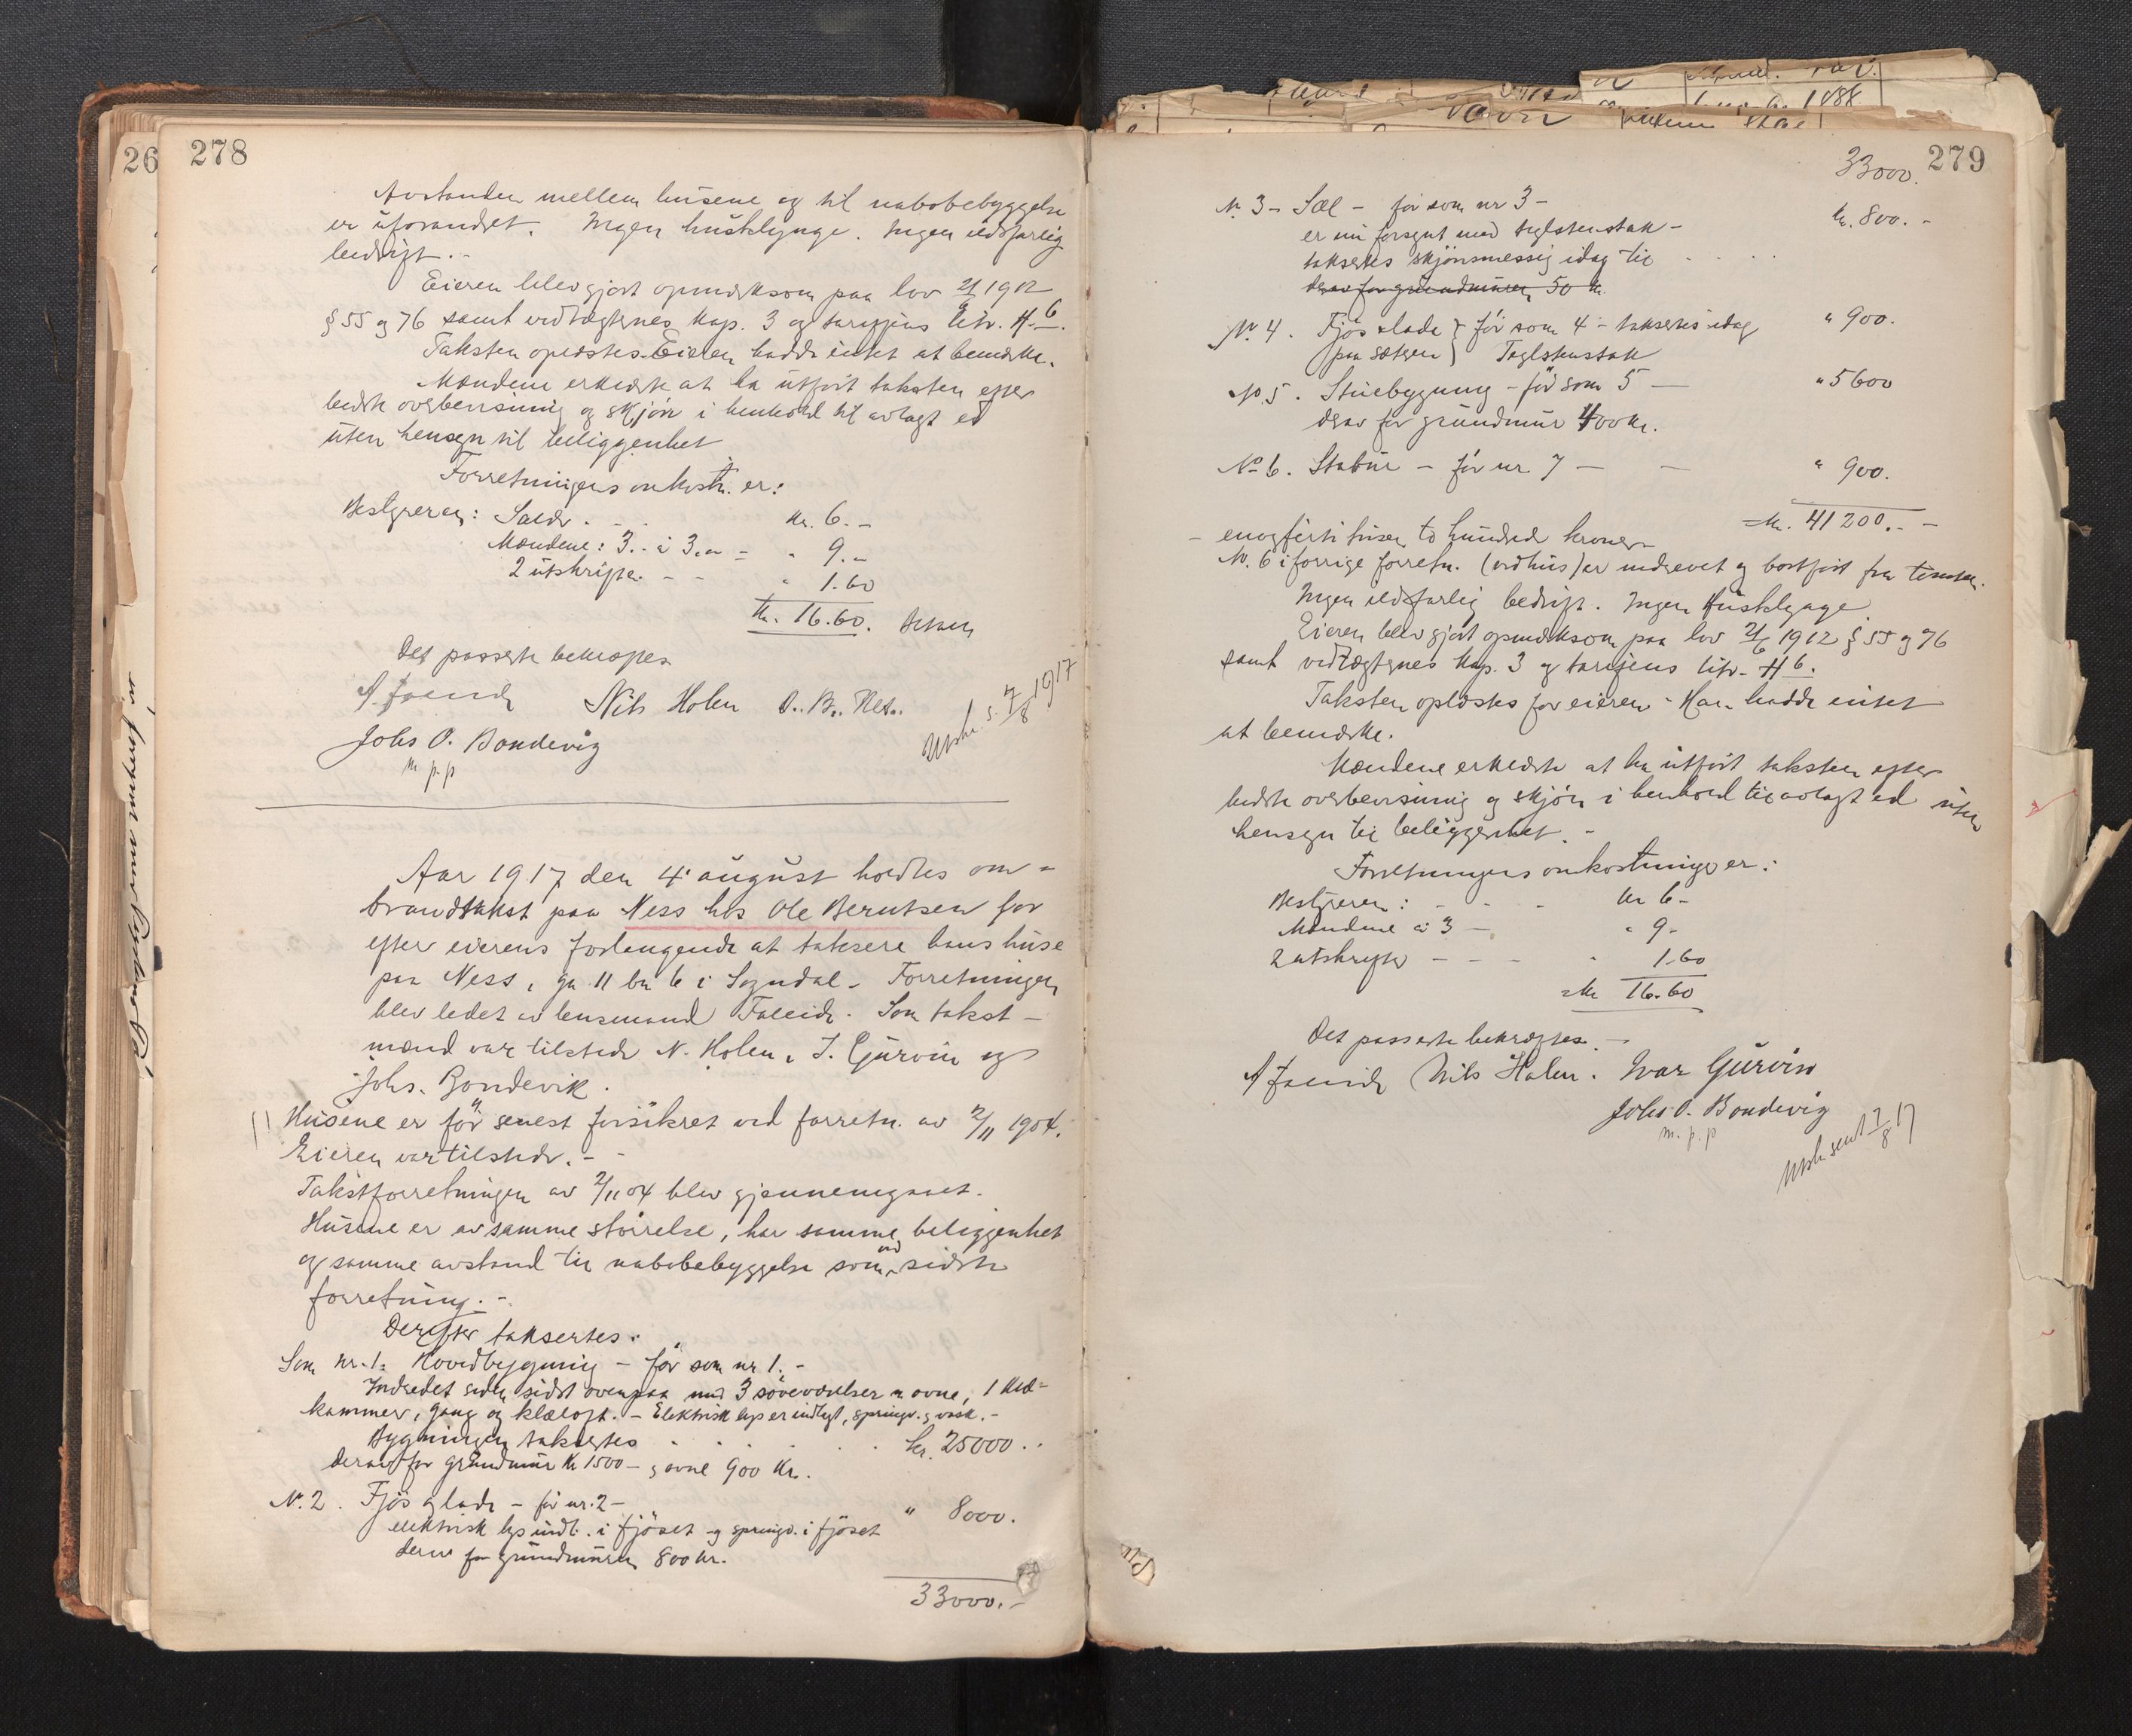 278
Avstanden mellem husene og til nabobebyggelse
er uforandret. Ingen husklynge. Ingen ildsfarlig
bedrift. -
Eieren blev gjort opmerksom paa lov 21/6 1912
§ 55 og 76 samt vedtægternes kap. 3 og tariffens litr. H. 6.
Taksten oplæstes. Eieren hadde intet at bemerke.
Mændene erklærte at ha utført taksten efter
bedste overbevisning og skjøn i henhold til avlagt ed
uten hensyn til beliggenhet
Forretningens omkostn. er:
Bestyreren: Salær . - . kr. 6. -
Mændene: 3. - à 3.00 - " 9. -
2 utskrifter. - - " 1.60
Kr. 16.60.
Det passerte bekræftes
A. Faleide Nils Holen O. B. Nes.
Johs O. Bondevig
m. p. p
Utskr. s. 7/8 1917
Aar 1917 den 4' august holdtes om-
brandtakst paa Ness hos Ole Berntsen for
efter eierens forlangende at taksere hans huse
paa Ness, gn 11 bn 6 i Sogndal - Forretningen
blev ledet av lensmand Faleide. Som takst-
mænd var tilstede N. Holen, I. Gurvin og
Johs. Bondevik.
Husene er før senest forsikret ved forretn. av 2/11 1904.
Eieren var tilstede. - -
Takstforretningen av 2/11 04 blev gjennemgaaet.
Husene er av samme størrelse, har samme beliggenhet
og samme avstand til nabobebyggelse som ved sidste
forretning. -
Derefter taksertes:
Som nr. 1: Hovedbygning - før som nr 1. -
Indredet siden sidst ovenpaa med 3 soveværelser m ovne, 1 klæ-
kammer, gang og klæloft. - Elektrisk lys er indlagt, springv. og vask. -
Bygningen takseres . . . . kr. 25000. .
derav for grundmur kr 1500 - og ovne 900 kr.
N. 2. Fjøs og lade - før nr. 2 -
elektrisk lys indl. i fjøset og springv. i fjøset " 8000.
derav for grundmuren 800 kr.
33000. -
279
33000.
N. 3 - Sæl - før som nr 3 -
er nu forsynt med teglstenstak - kr. 800. -
takseres skjønsmessig idag til . . . .
derav for grundmuren 50 kr.
N. 4. Fjøs & lade } før som 4 - takseres idag " 900.
(paa sætren) Teglstenstak
No. 5. Stuebygning - før som 5 - " 5600
derav for grundmur 400 kr.
No 6. Stabur - før nr 7 - - " 900.
= kr. 41200. - -
- enogførti tusen to hundrede kroner -
N. 6 i forrige forretn. (vedhus) er nedrevet og bortført fra tomten.
Ingen ildsfarlig bedrift. Ingen Husklynge.
Eieren blev gjort opmerksom paa lov 21/6 1912 § 55 og 76
samt vedtægternes kap. 3 og tariffens litr. H 6.
Taksten oplæstes for eieren - Han hadde intet
at bemerke.
Mændene erklærte at ha utført taksten efter
bedste overbevisning og skjøn i henhold til avlagt ed uten
hensyn til beliggenhet. -
Forretningens omkostninger er:
Bestyreren: - - - kr 6 -
Mændene à 3 - " 9 -
2 utskrifter - - - " 1.60
= kr 16.60
Det passerte bekræftes. -
A Faleide Nils Holen. Ivar Gurvin
Johs O. Bondevig
m. p. p
Utskr sendt 7/8 17